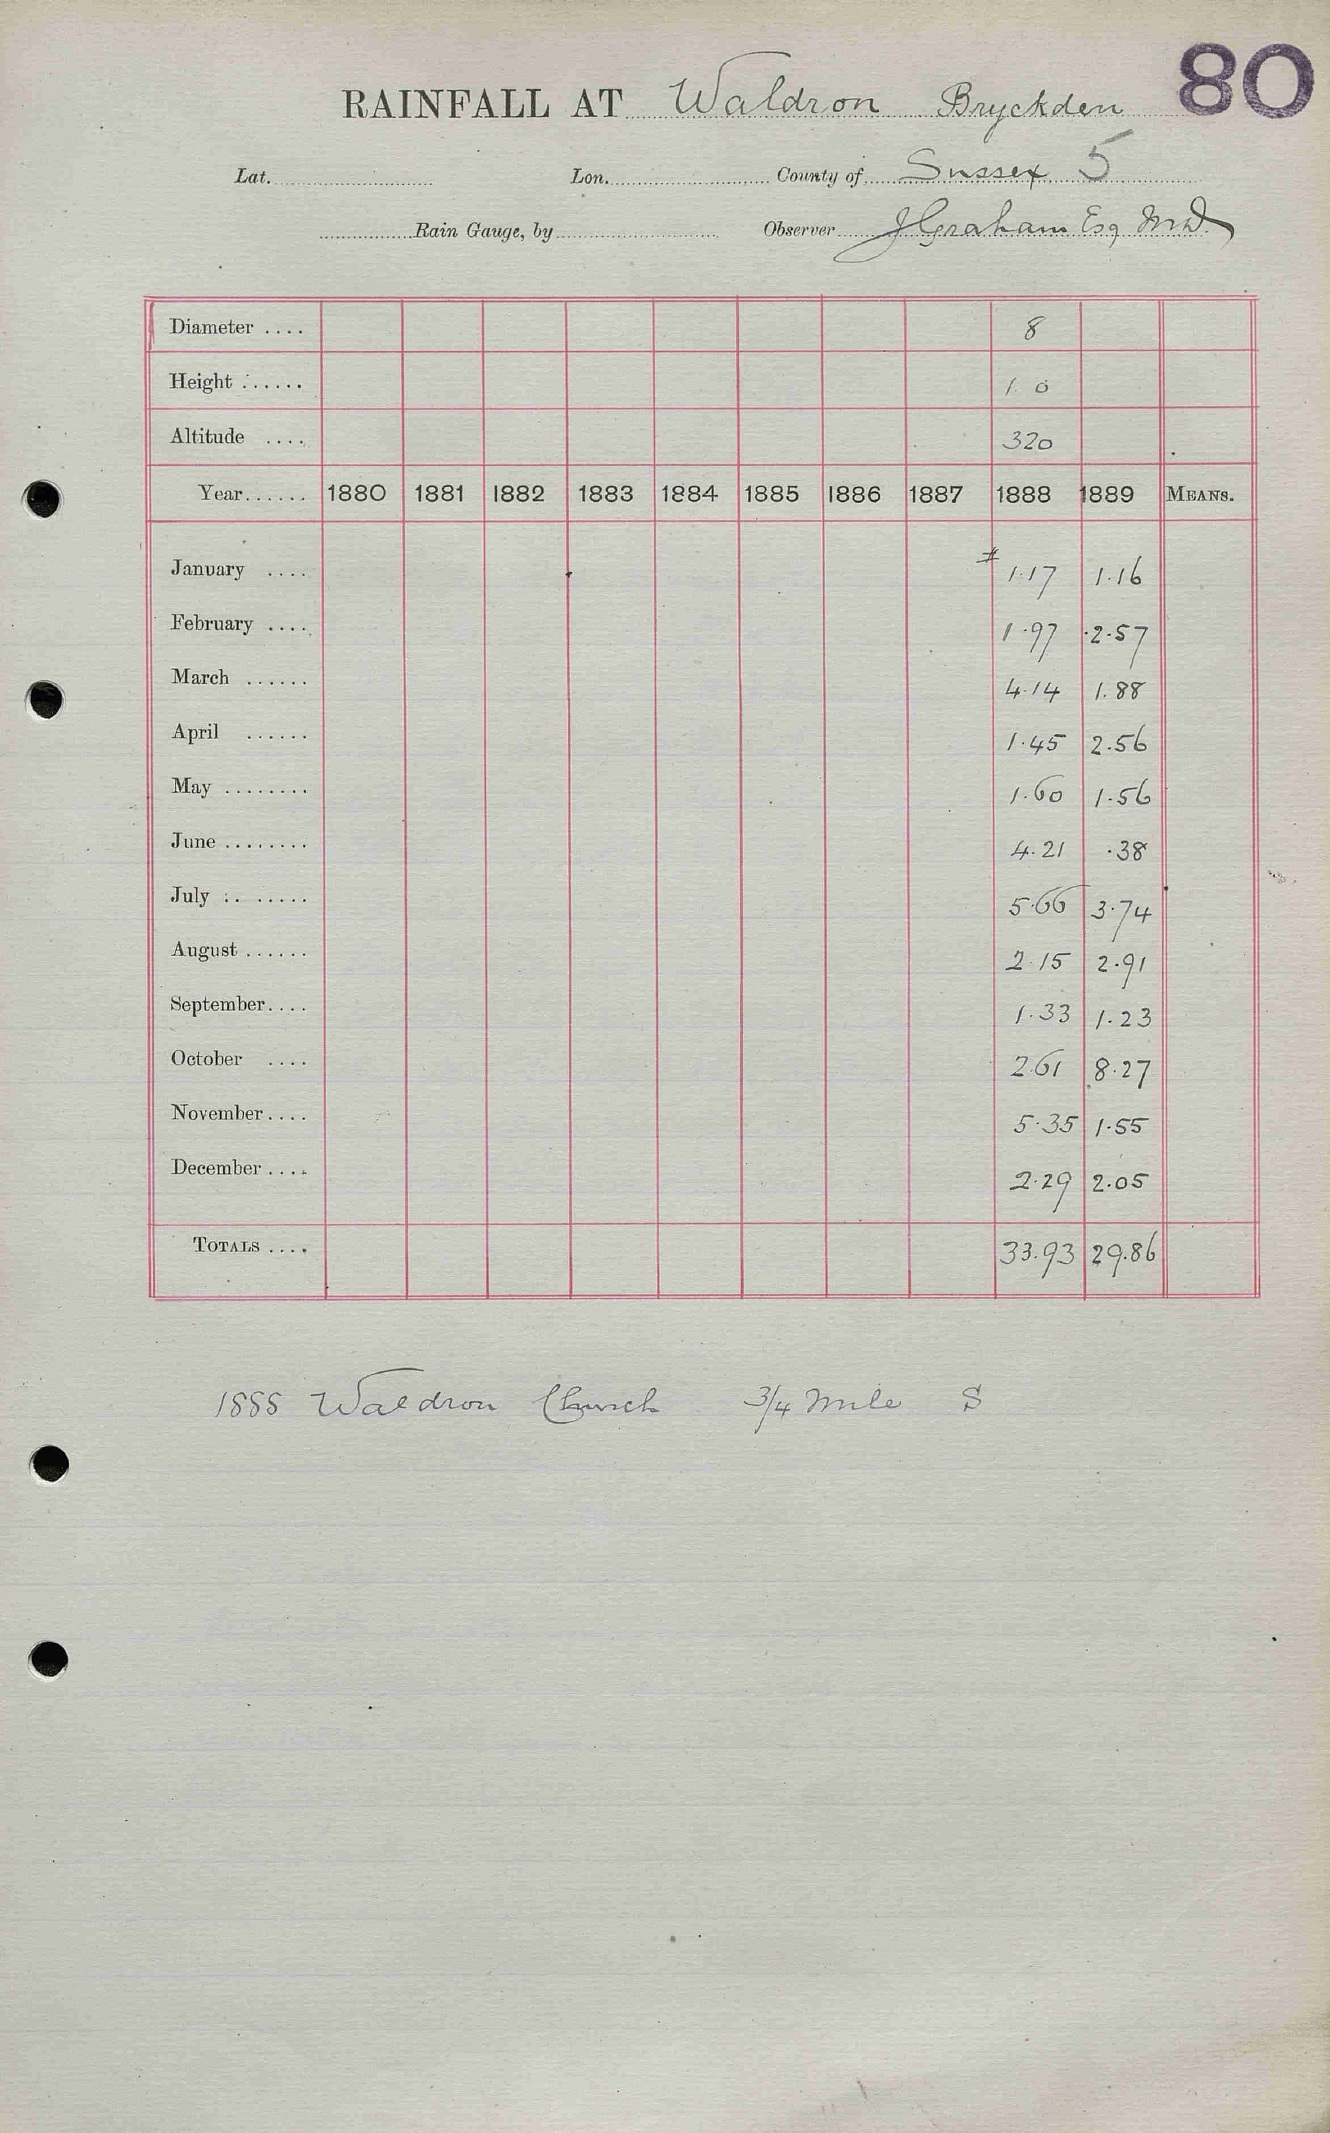 80
RAINFALL AT Waldron Bryckden
Lat. Lon. County of Sussex 5
Rain Gauge, by Observer J Graham Esq MD.
Diameter .... 8
Height ...... 1 0
Altitude .... 320
Year...... 1880 1881 1882 1883 1884 1885 1886 1887 1888 1889 MEANS.
January .... # 1.17 1.16
February .... 1.97 2.57
March ...... 4.14 1.88
April ...... 1.45 2.56
May ........ 1.60 1.56
June ........ 4.21 .38
July ........ 5.66 3.74
August ...... 2.15 2.91
September.... 1.33 1.23
October .... 2.61 8.27
November.... 5.35 1.55
December .... 2.29 2.05
TOTALS .... 33.93 29.86
1888 Waldron Church 3/4 Mile S